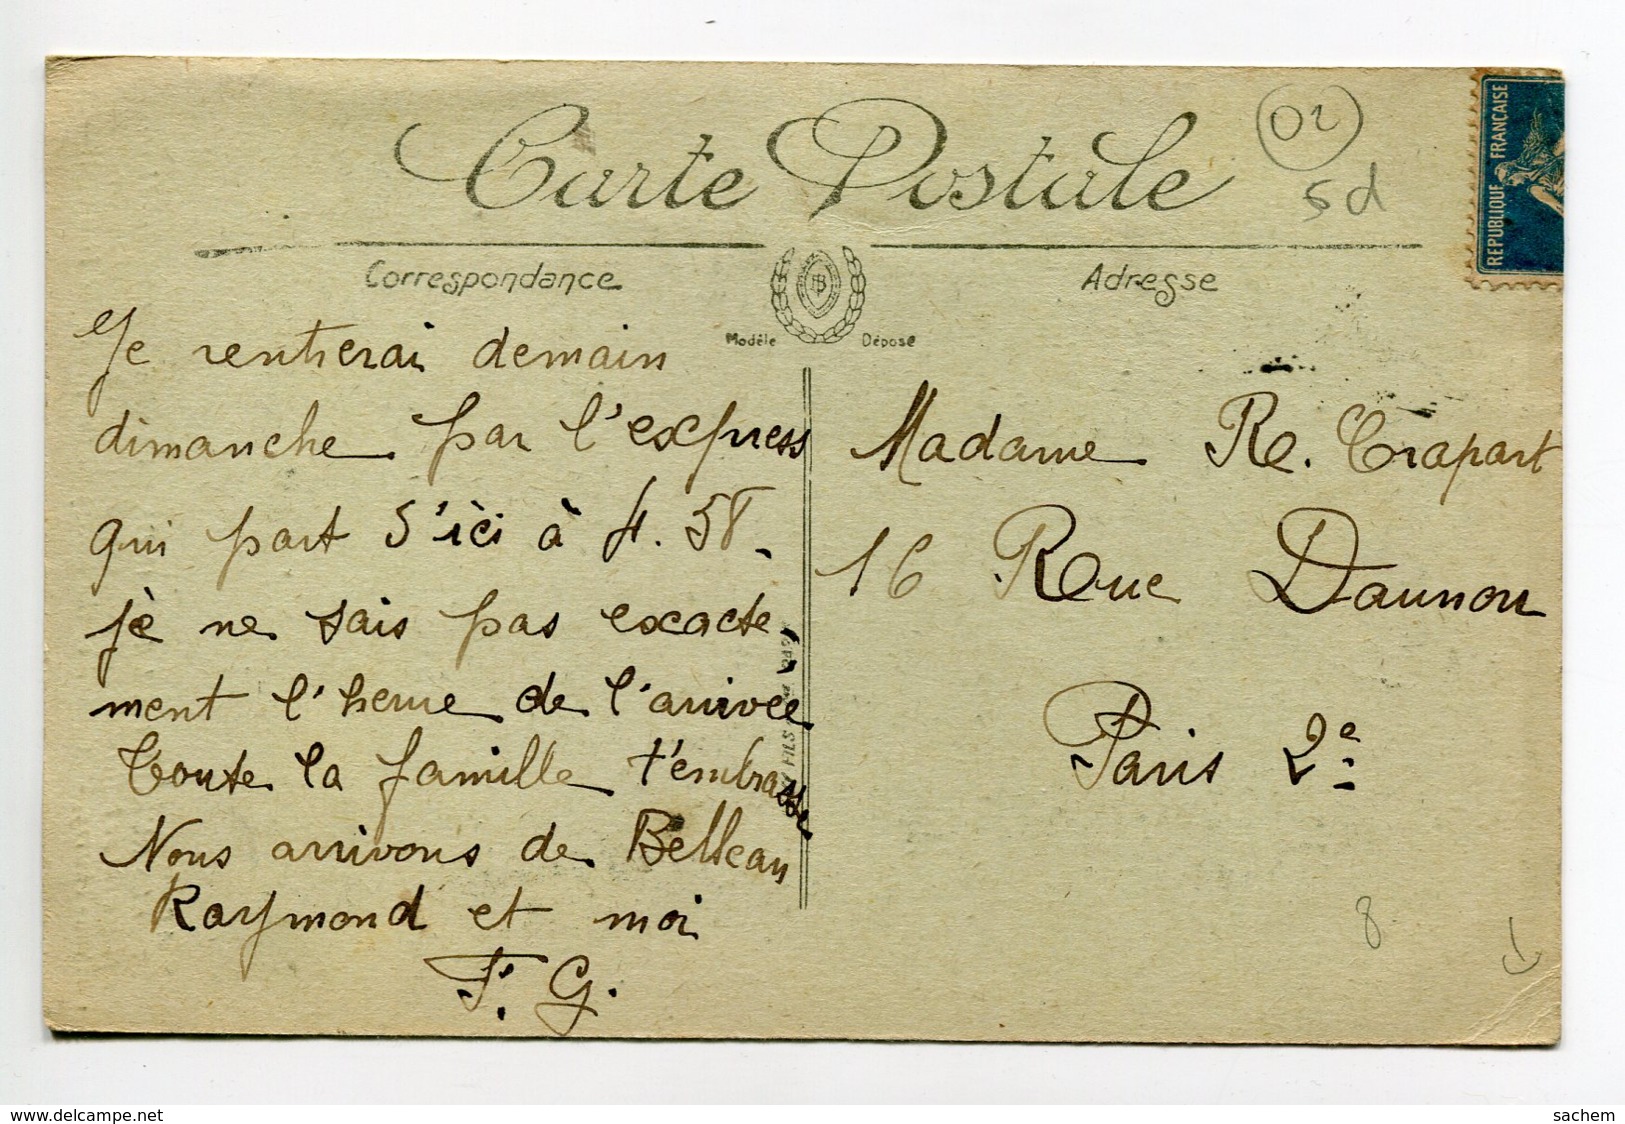 Carte Postale
02
sd
REPUBLIQUE FRANÇAISE
Correspondance
Adresse
Modèle Déposé
Je rentrerai demain
dimanche par l'express
qui part d'ici à 4.58.
je ne sais pas exacte
ment l'heure de l'arrivée
Toute la famille t'embrasse
Nous arrivons de Belleau
Raymond et moi
F. G.
Madame Re. Trapart
16 Rue Daunou
Paris 2e
FILS
8
www.delcampe.net
sachem